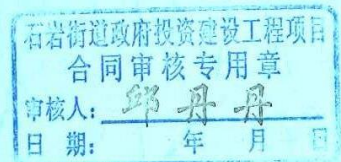 石岩街道政府投资建设工程项目
合同审核专用章
审核人：邱丹丹
日期：  年  月  日